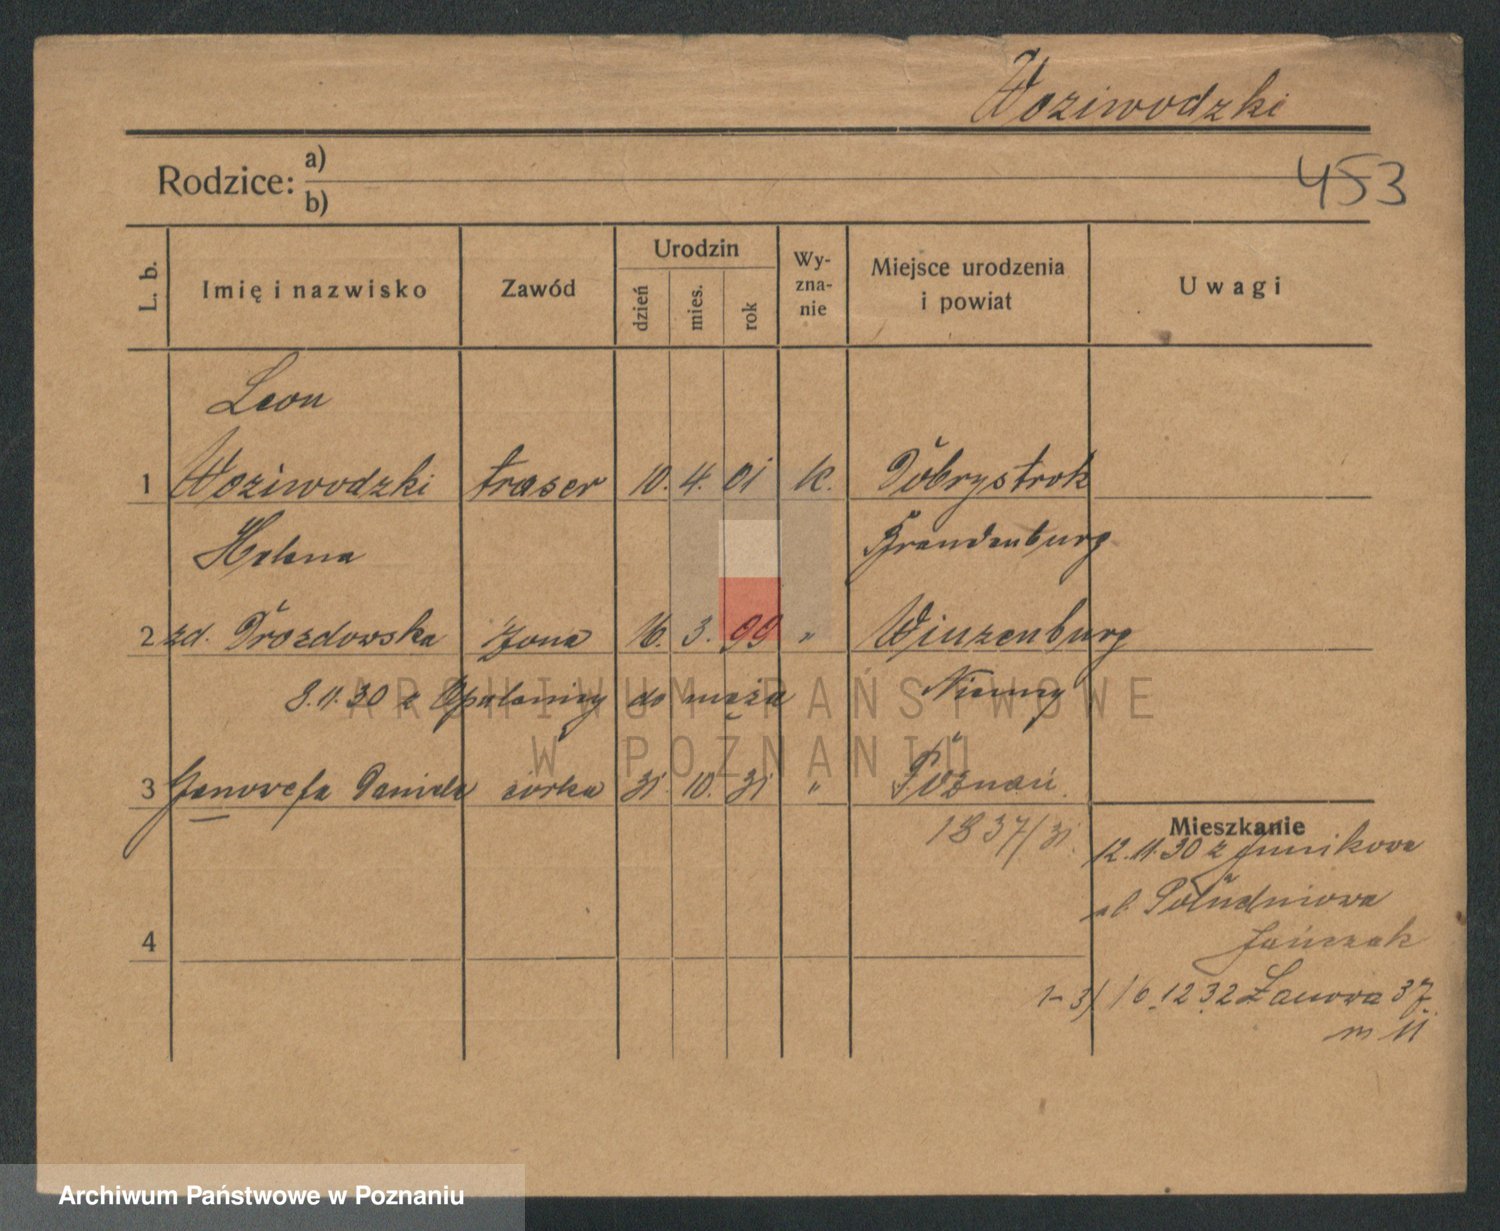 Woziwodzki
453
Rodzice: a)
b)
L. b.
Imię i nazwisko
Zawód
Urodzin
dzień
mies.
rok
Wy-
zna-
nie
Miejsce urodzenia
i powiat
Uwagi
Leon
1 Woziwodzki traser 10. 4. 01 k. Dobrystrok
Helena Brandenburg
2 zd. Drozdowska żona 16. 3. 99 " Winzenburg
8.11.30 z Opalenicy do męża Niemcy
3 Genowefa Daniela córka 31. 10. 31 " Poznań.
1837/31.
Mieszkanie
12.11.30 z Junikowa
ul. Południowa
Jańczak
4
1-3) 16.12.32 Łanowa 37
m 11
ARCHIWUM PAŃSTWOWE
W POZNANIU
Archiwum Państwowe w Poznaniu